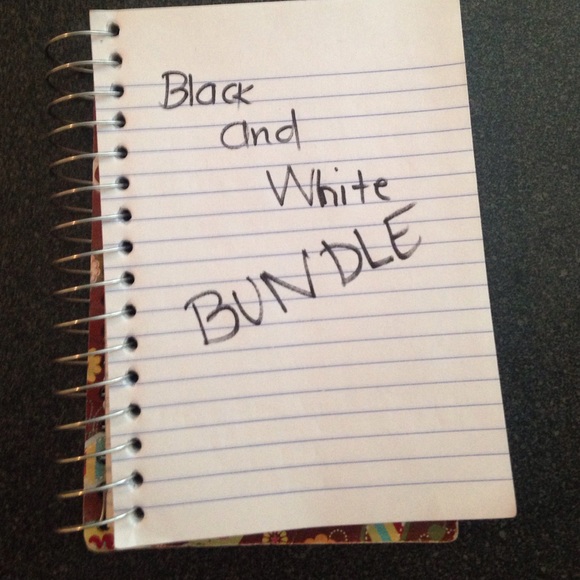 Black
and
White
BUNDLE